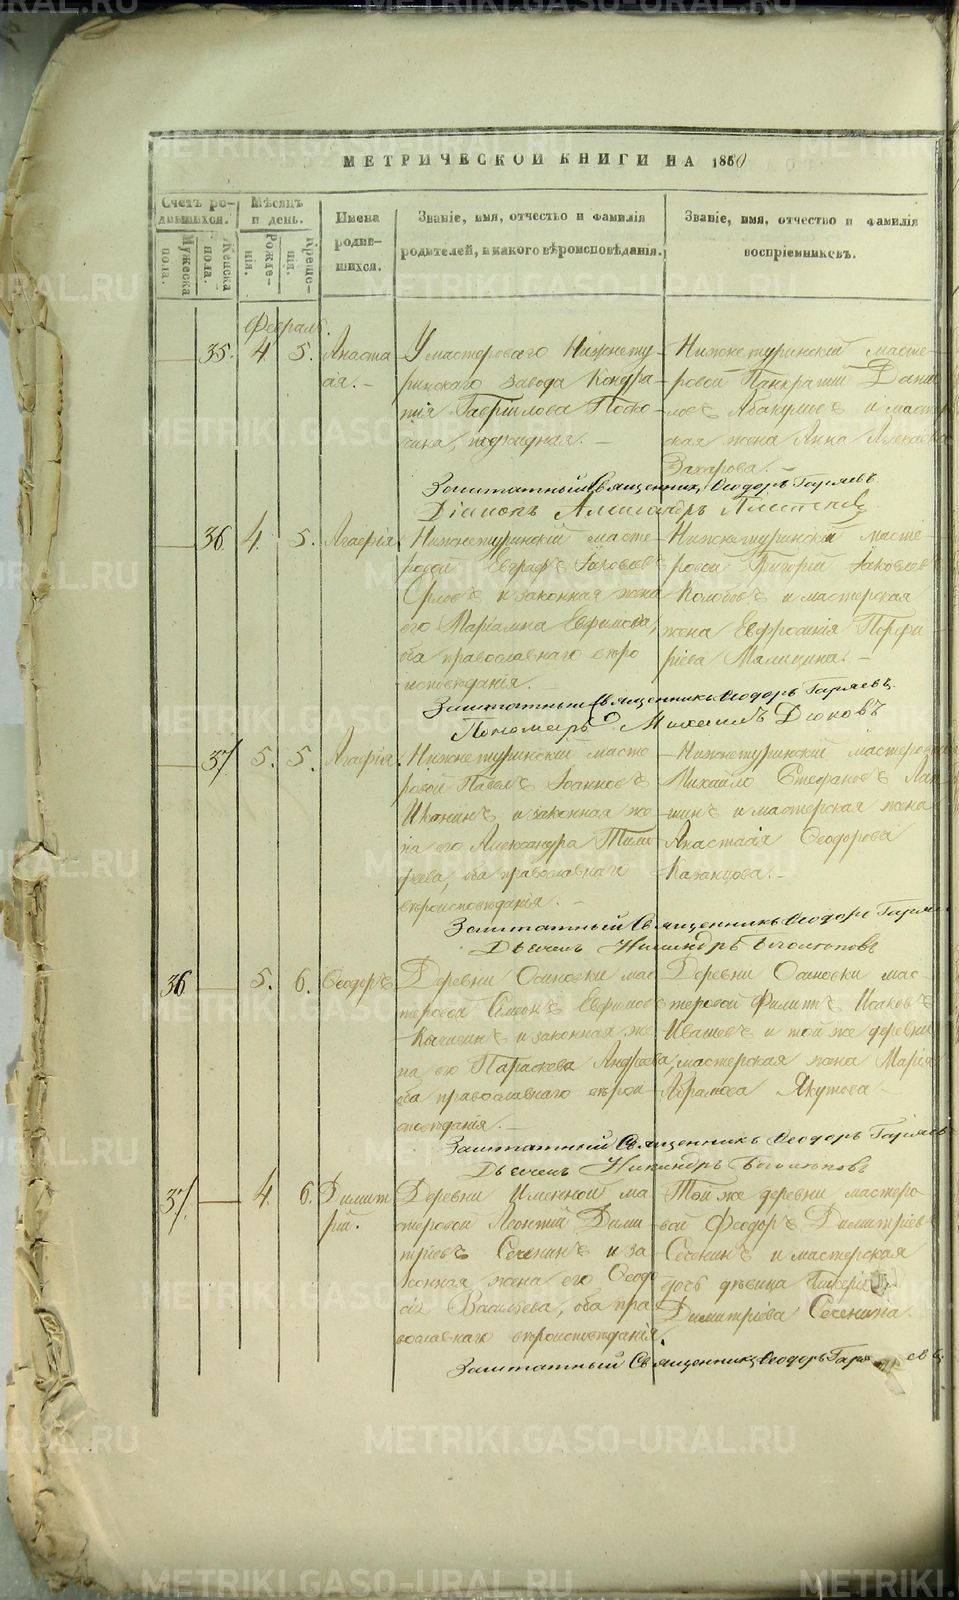 МЕТРИЧЕСКОЙ КНИГИ НА 1860
Счетъ ро-
дившихся.
Мѣсяцъ
и день.
Имена
родив-
шихся.
Званіе, имя, отчество и фамилія
родителей, и какого вѣроисповѣданія.
Званіе, имя, отчество и фамилія
воспріемниковъ.
Мужеска
пола.
Женска
пола.
Рожде-
нія.
Креще-
нія.
Февраль.
35. 4. 5. Анаста
сія. –
У мастероваго Нижнету-
ринскаго завода Кондра
тія Гаврилова
Нижнетуринскій масте-
ровой Панкратій Дани
ловъ и мастер
ская жена Анна
Захарова. –
Заштатный Священникъ Ѳеодоръ Гаряевъ.
Діаконъ Александръ
36. 4. 5. Агафія.
Нижнетуринскій масте-
ровой Евграфъ Іаковлевъ
Орловъ и законная жена
его Маріамна Евфимова,
оба православнаго вѣро
исповѣданія.
Нижнетуринскій масте-
ровой Григорій Іаковлевъ
Колобовъ и мастерская
жена Евфросинія Порфи
ріева Мялицина. –
Заштатный Священникъ Ѳеодоръ Гаряевъ.
Пономарь Михаилъ Дюковъ
37. 5. 5. Агафія.
Нижнетуринскій масте
ровой Павелъ Іоанновъ
Иканинъ и законная же
на его Александра Тимо
феева, оба православнаго
вѣроисповѣданія. –
Нижнетуринскій мастеровой
Михайло Стефановъ Лап
шинъ и мастерская жена
Анастасія Ѳеодорова
Казанцова. –
Заштатный Священникъ Ѳеодоръ Гаряевъ
Дьячекъ Никандръ Боголѣповъ
36 5. 6. Ѳеодоръ
Деревни Осиновки мас
теровой Симеонъ Евфимовъ
и законная же
на его Параскева Андреева,
оба православнаго вѣрои
сповѣданія. –
Деревни Осиновки мас-
теровой Филиппъ Исаковъ
Ивашевъ и той же деревни
мастерская жена Марія
Абрамова Якутова
Заштатный Священникъ Ѳеодоръ Гаряевъ
Дьячекъ Никандръ Боголѣповъ
37. 4. 6. Димит
рій.
Деревни Именной ма
стеровой Леонтій Дими
тріевъ Сеченинъ и за
конная жена его Ѳеодо
сія Васильева, оба пра
вославнаго вѣроисповѣданія.
Той же деревни мастеро
вой Феодоръ Димитріевъ
Сеченинъ и мастерская
дочь дѣвица Гликерія
Димитріева Сеченина.
Заштатный Священникъ Ѳеодоръ Гаряевъ